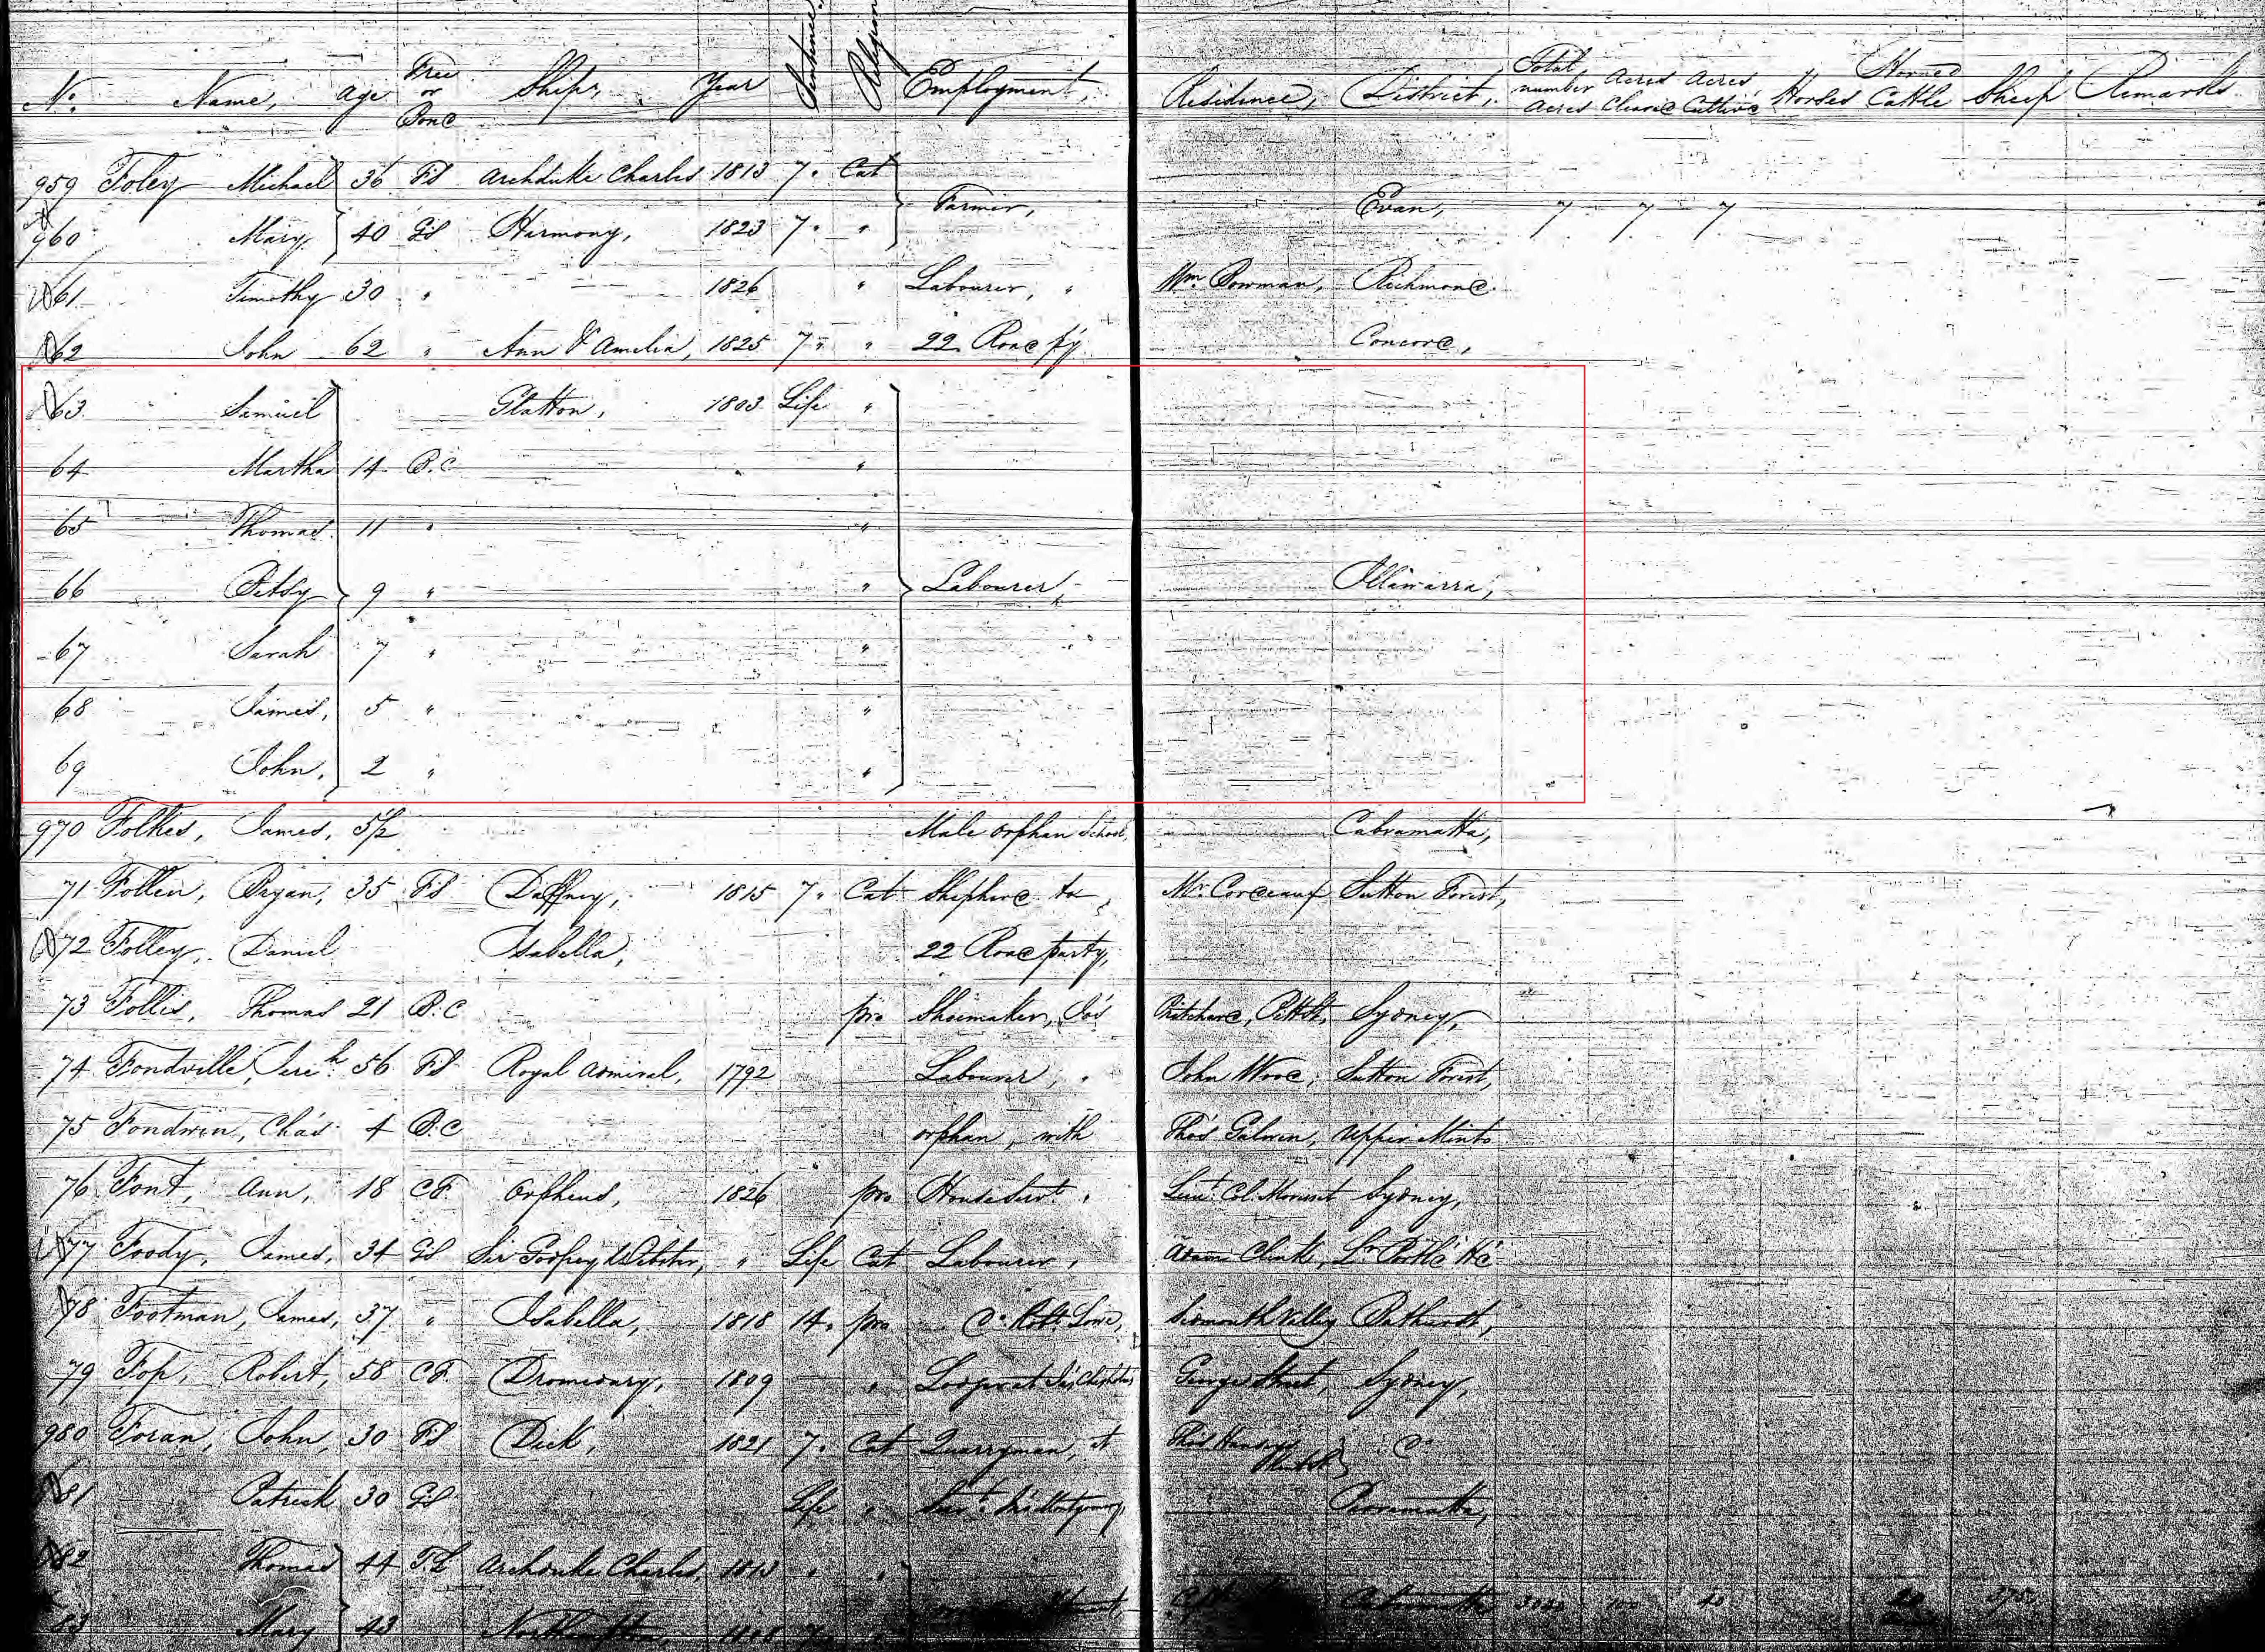 No. Name, Age Free or Bond Ships, Year Sentence Religion Employment, Residence, District, Total number Acres Acres Cleard Acres Cultivd Horses Horned Cattle Sheep Remarks
959 Foley Michael 36 F.S Archduke Charles 1813 7. Cat
Farmer, Evan, 7 7 7
960 Mary 40 G.S Harmony, 1823 7. "
61 Timothy 30 " 1826 " Labourer, " Wm. Bowman, Richmond
62 John 62 " Ann & Amelia, 1825 7 " " 22 Road py Concord,
63 Samuel Glatton, 1803 Life "
64 Martha 14 B.C "
65 Thomas 11 " "
66 Betsy 9 " " Labourer, Illawarra,
67 Sarah 7 " "
68 James, 5 " "
69 John, 2 " "
970 Folkes, James, 5½ Male Orphan School, Cabramatta,
71 Follen, Bryan, 35 F.S Daffney, 1815 7. Cat Shepherd to Mr. Cordeaux Sutton Forest,
72 Folley, Daniel Isabella, 22 Road party,
73 Follis, Thomas 21 B.C pro Shoemaker, Jas Pritchard, Pitt St, Sydney,
74 Fondville, Jereh 56 F.S Royal Admiral, 1792 Labourer, " John Wood, Sutton Forest,
75 Fondwin, Chas 4 B.C orphan, with Thos Galvin, Upper Minto
76 Font, Ann, 18 C.F. Orpheus, 1826 pro House Servt, Lieut. Col. Morisset Sydney,
77 Foody, James, 34 G.S Sir Godfrey Webster, " Life Cat Labourer, Adam Clink, Lr. Portld Hd
78 Footman, James, 37 " Isabella, 1818 14. pro Do. Robt. Lowe, Sidmouth Valley Bathurst,
79 Fop, Robert, 58 C.F. Dromedary, 1809 " Lodger at Jas George Street, Sydney,
980 Foran, John, 30 F.S Dick, 1821 7. Cat Quarryman, at Thos Do
81 Patrick 30 G.S Life " Servt. Parramatta,
82 Thomas 44 T.L Archduke Charles, 1813 " "
83 Mary 43 Northampton, Cabramatta 100 40 20